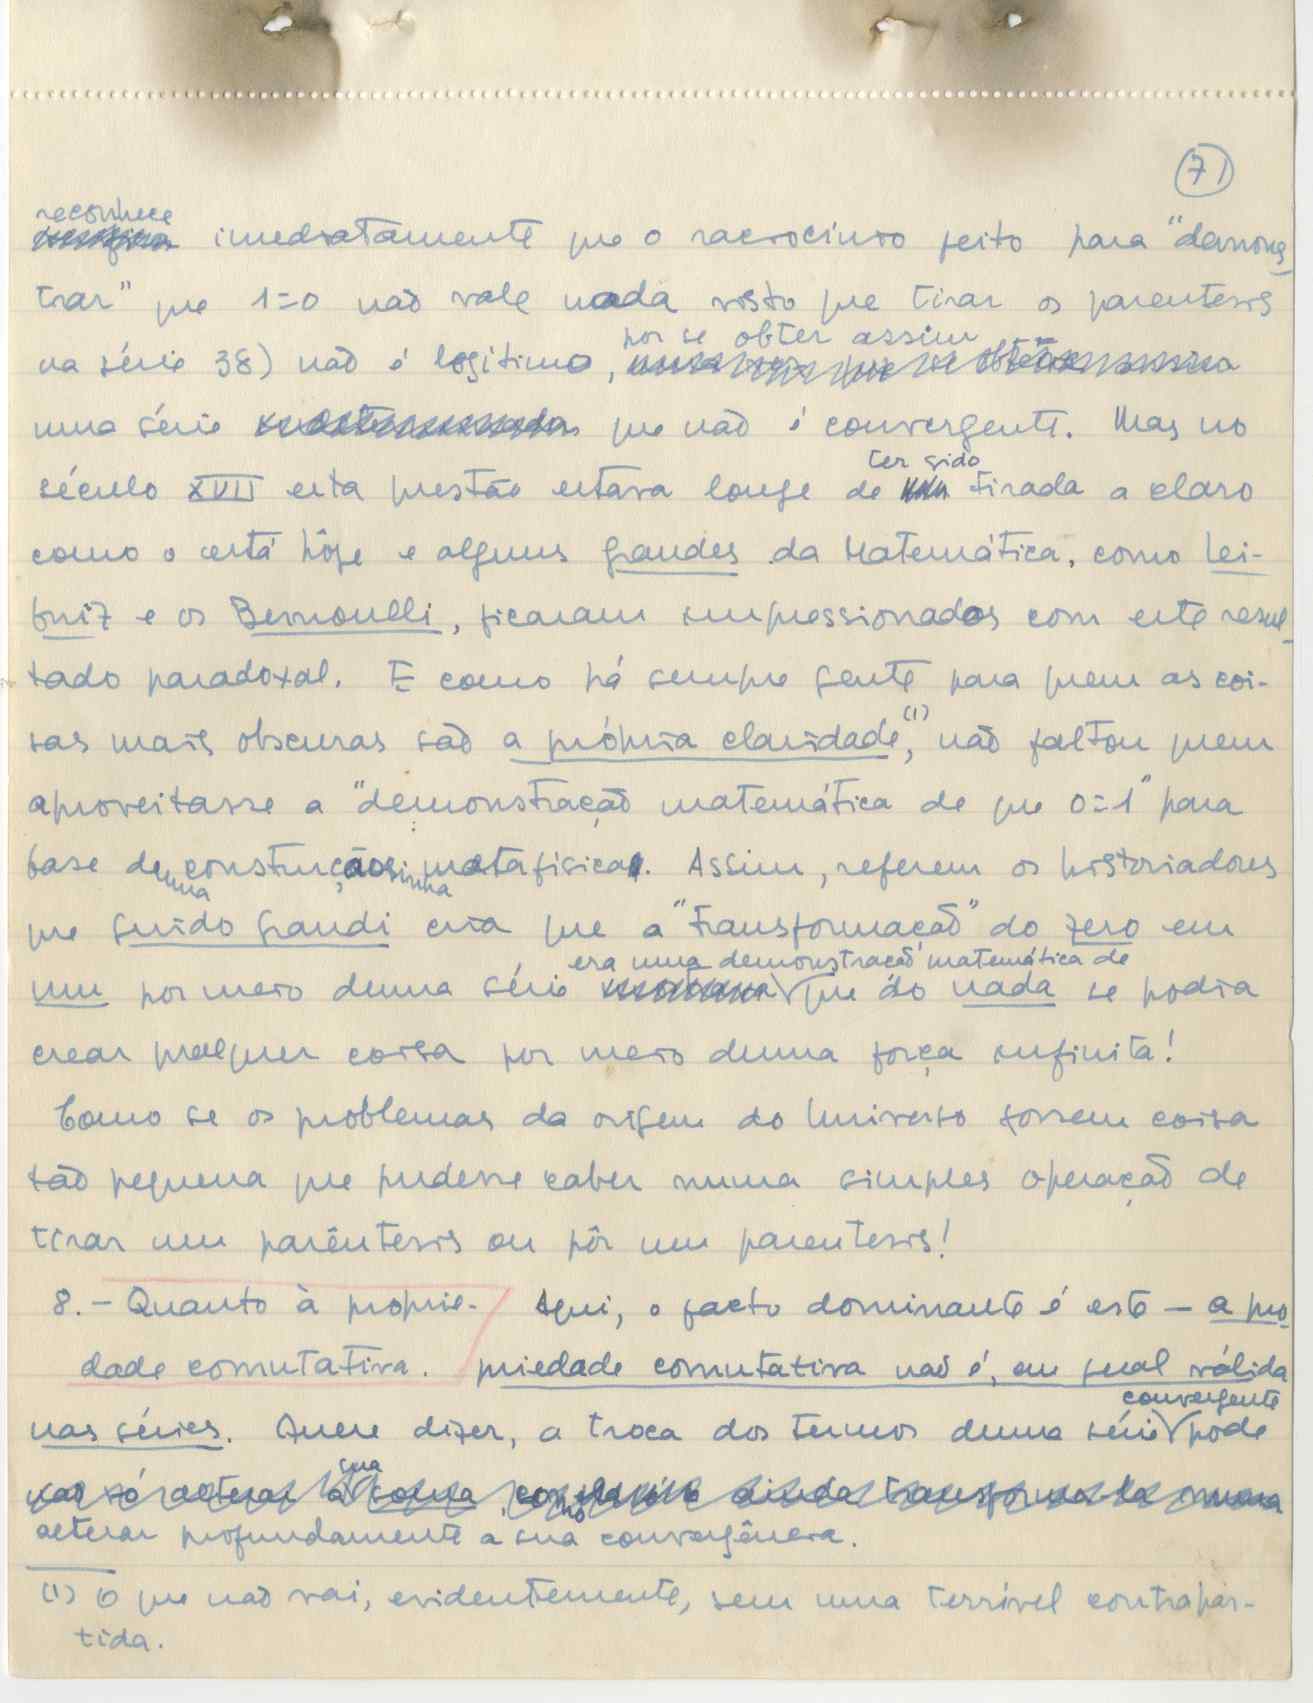 71
reconhece
imediatamente que o raciocínio feito para "demons-
trar" que 1=0 não vale nada visto que tirar os parentesis
por se obter assim
na série 38) não é legítimo,
uma série que não é convergente. Mas no
ter sido
século XVII esta questão estava longe de tirada a claro
como o está hoje e alguns grandes da Matemática, como Lei-
bniz e os Bernoulli, ficaram impressionados com este resul-
tado paradoxal. E como há sempre gente para quem as coi-
sas mais obscuras são a própria claridade,(1) não faltou quem
aproveitasse a "demonstração matemática de que 0=1" para
base de construção metafísica. Assim, referem os historiadores
uma
que Guido Grandi cria que a "transformação" do zero em
era uma demonstração matemática de
um por meio duma série que do nada se podia
crear qualquer coisa por meio duma força infinita!
Como se os problemas da origem do Universo fossem coisa
tão pequena que pudesse caber numa simples operação de
tirar um parêntesis ou pôr um parentesis!
8.- Quanto à proprie- Aqui, o facto dominante é este — a pro-
dade comutativa. priedade comutativa não é, em geral válida
convergente
nas séries. Quere dizer, a troca dos termos duma série pode
alterar profundamente a sua convergência.
(1) O que não vai, evidentemente, sem uma terrível contrapar-
tida.